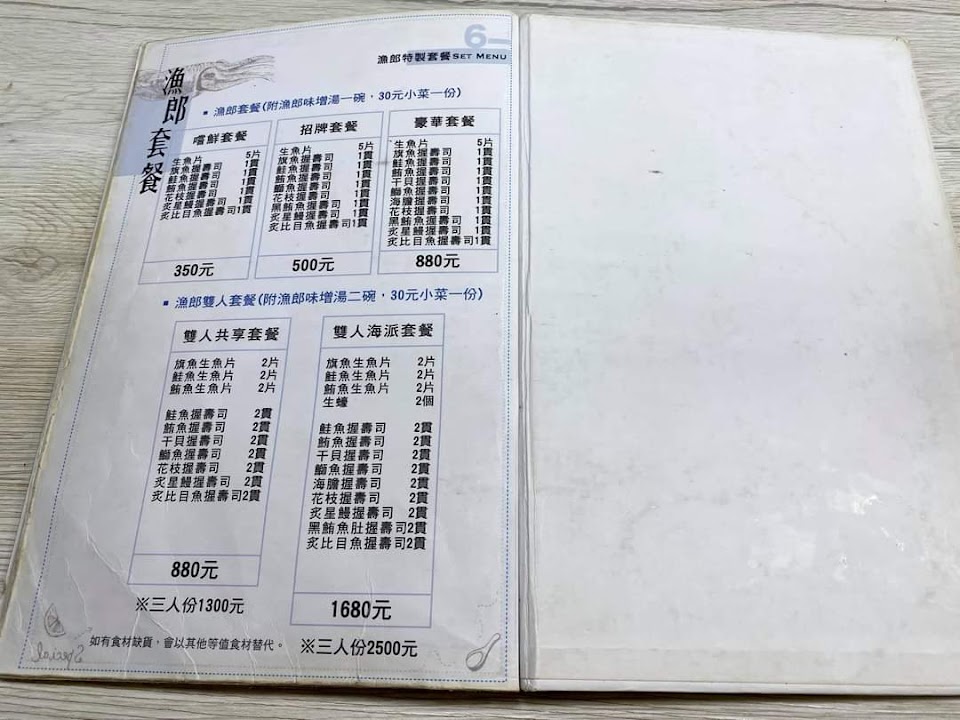 6
漁郎特製套餐SET MENU
漁郎套餐
▪ 漁郎套餐(附漁郎味增湯一碗，30元小菜一份)
嚐鮮套餐
生魚片 5片
旗魚握壽司 1貫
鮭魚握壽司 1貫
鮪魚握壽司 1貫
鰤魚握壽司 1貫
花枝握壽司 1貫
炙星鰻握壽司 1貫
炙比目魚握壽司1貫
350元
招牌套餐
生魚片 5片
旗魚握壽司 1貫
鮭魚握壽司 1貫
鮪魚握壽司 1貫
鰤魚握壽司 1貫
花枝握壽司 1貫
黑鮪魚握壽司 1貫
炙星鰻握壽司 1貫
炙比目魚握壽司1貫
500元
豪華套餐
生魚片 5片
旗魚握壽司 1貫
鮭魚握壽司 1貫
鮪魚握壽司 1貫
干貝握壽司 1貫
鰤魚握壽司 1貫
海膽握壽司 1貫
花枝握壽司 1貫
黑鮪魚握壽司 1貫
炙星鰻握壽司 1貫
炙比目魚握壽司1貫
880元
▪ 漁郎雙人套餐(附漁郎味增湯二碗，30元小菜一份)
雙人共享套餐
旗魚生魚片 2片
鮭魚生魚片 2片
鮪魚生魚片 2片
鮭魚握壽司 2貫
鮪魚握壽司 2貫
干貝握壽司 2貫
鰤魚握壽司 2貫
花枝握壽司 2貫
炙星鰻握壽司 2貫
炙比目魚握壽司2貫
880元
※三人份1300元
雙人海派套餐
旗魚生魚片 2片
鮭魚生魚片 2片
鮪魚生魚片 2片
生蠔 2個
鮭魚握壽司 2貫
鮪魚握壽司 2貫
干貝握壽司 2貫
鰤魚握壽司 2貫
海膽握壽司 2貫
花枝握壽司 2貫
炙星鰻握壽司 2貫
黑鮪魚肚握壽司2貫
炙比目魚握壽司2貫
1680元
※三人份2500元
如有食材缺貨，會以其他等值食材替代。
Special